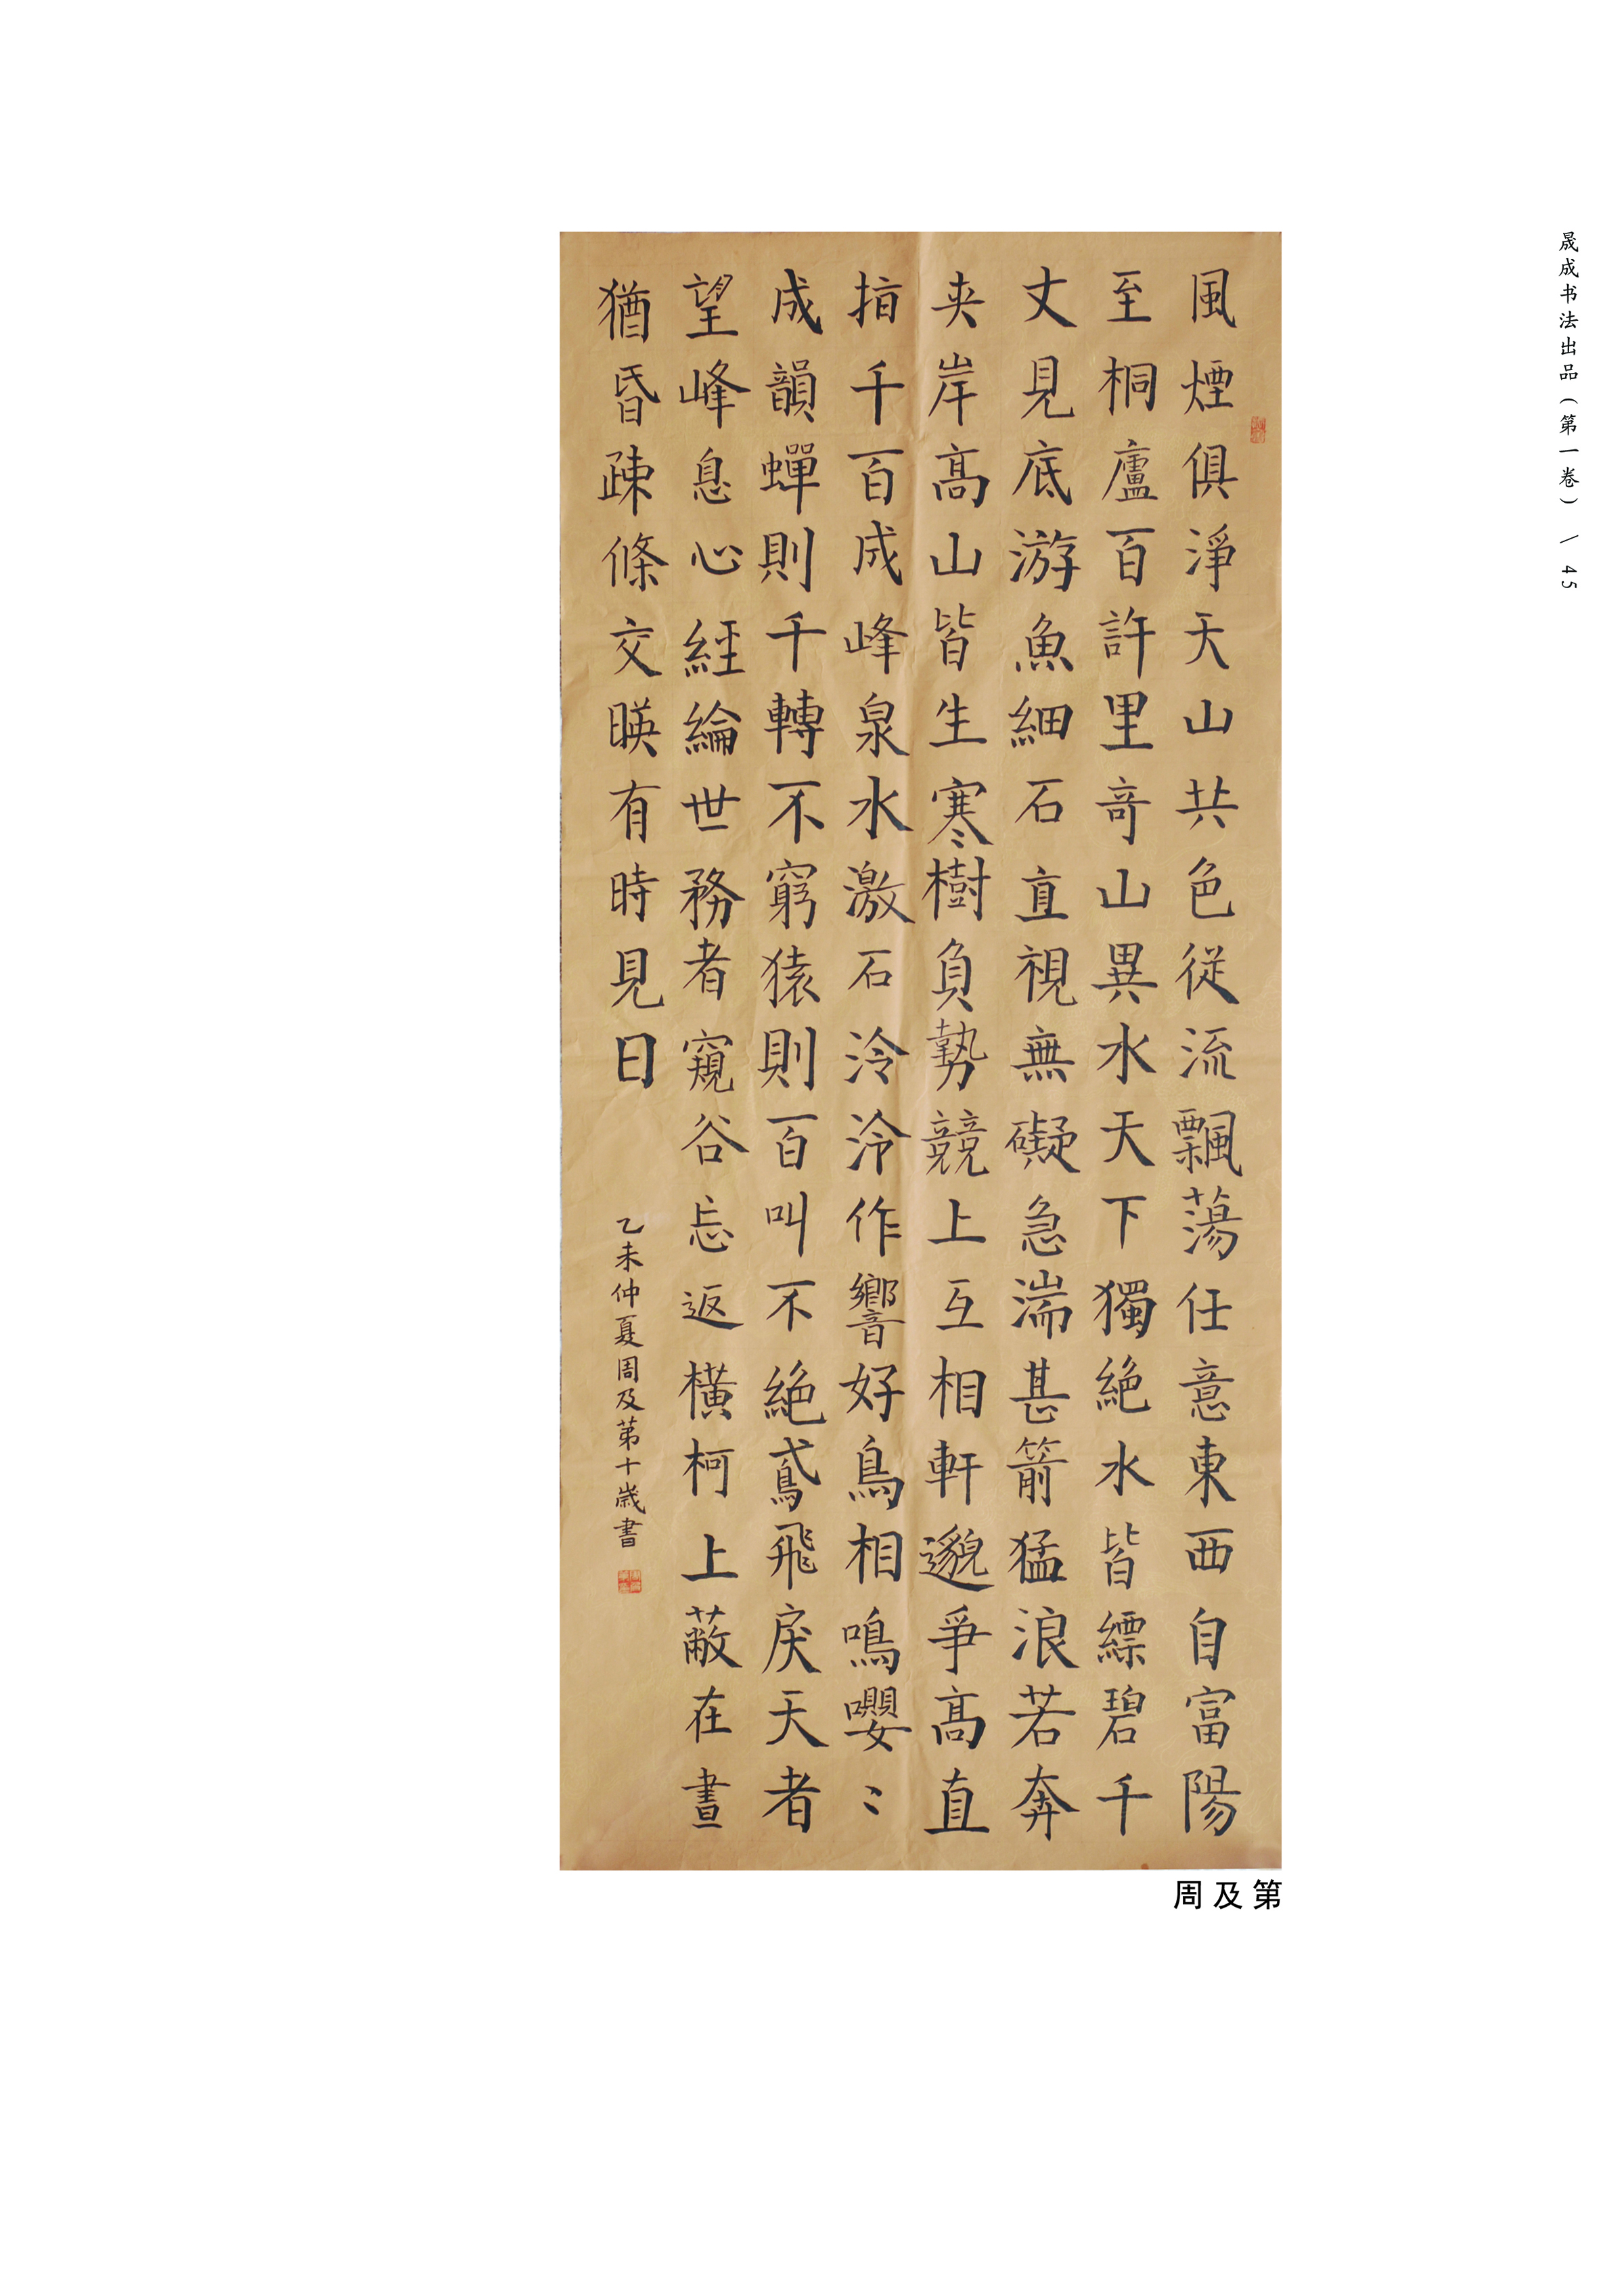 風煙俱淨天山共色從流飄蕩任意東西自富陽
至桐廬百許里奇山異水天下獨絶水皆縹碧千
丈見底游魚細石直視無礙急湍甚箭猛浪若奔
夹岸高山皆生寒樹負勢競上互相軒邈爭高直
指千百成峰泉水激石泠泠作響好鳥相鳴嚶〻
成韻蟬則千轉不窮猿則百叫不絶鳶飛戾天者
望峰息心經綸世務者窺谷忘返橫柯上蔽在晝
猶昏疎條交暎有時見日
乙未仲夏周及第十歲書
周及第
晟成书法出品(第一卷) \ 45